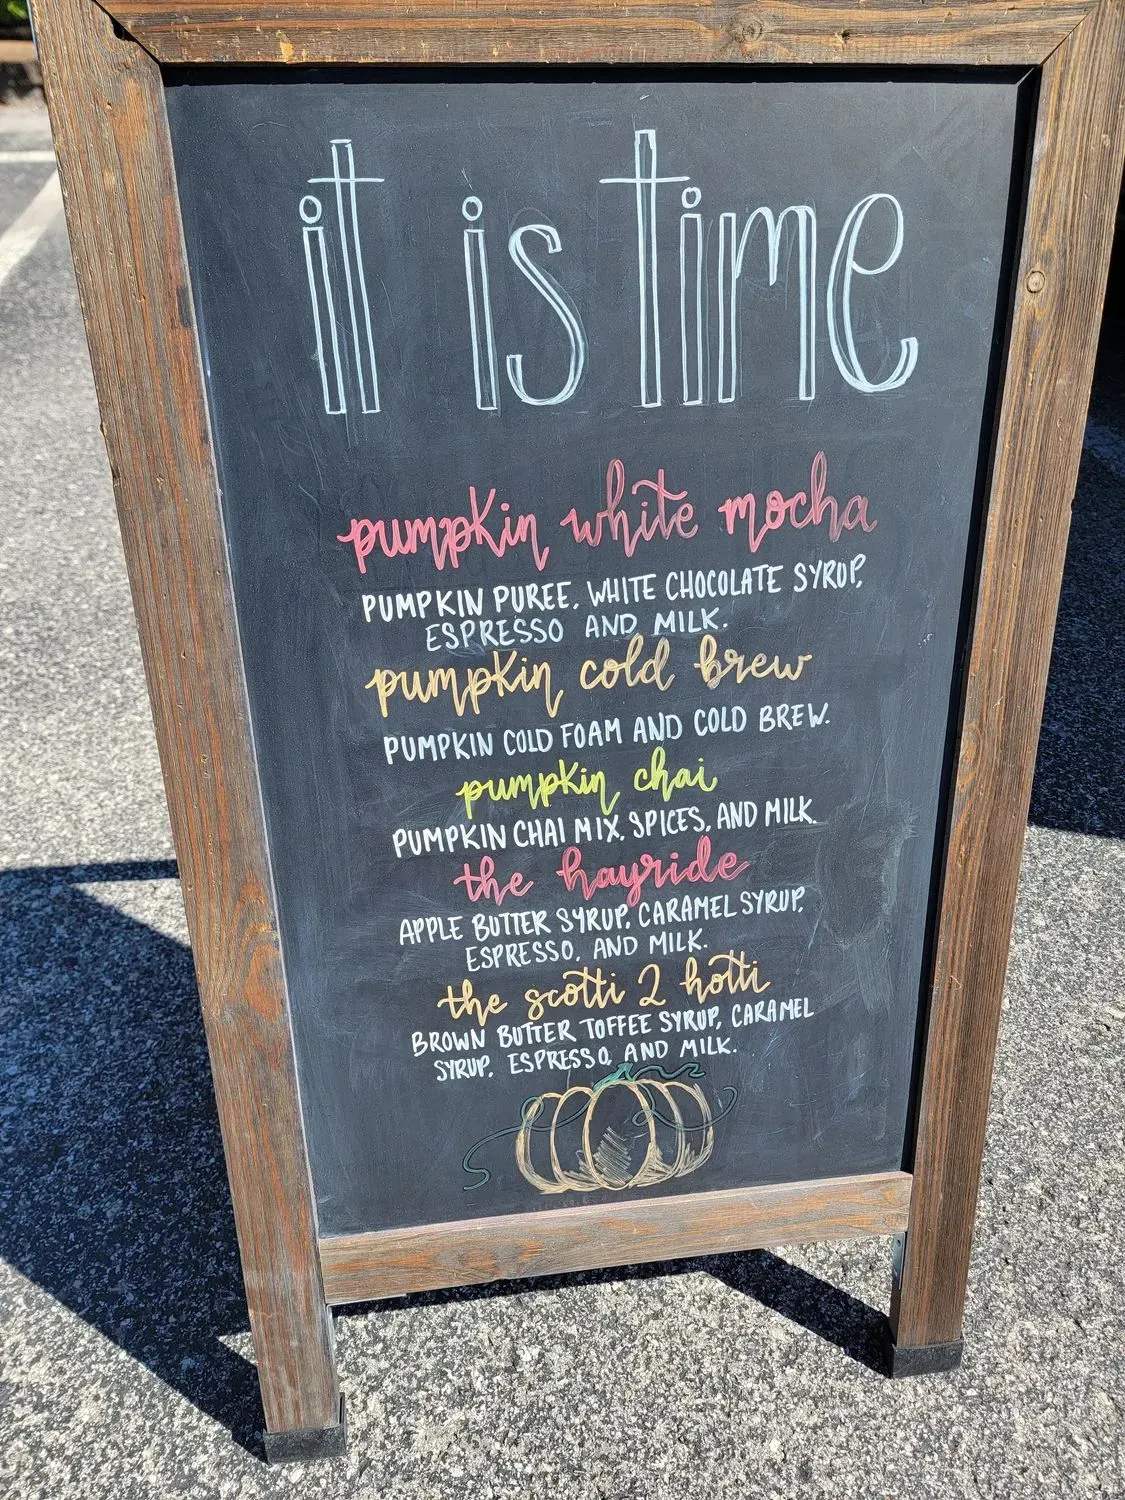 it is time
pumpkin white mocha
PUMPKIN PUREE, WHITE CHOCOLATE SYRUP,
ESPRESSO AND MILK.
pumpkin cold brew
PUMPKIN COLD FOAM AND COLD BREW.
pumpkin chai
PUMPKIN CHAI MIX, SPICES, AND MILK.
the hayride
APPLE BUTTER SYRUP, CARAMEL SYRUP,
ESPRESSO, AND MILK.
the scotti 2 hotti
BROWN BUTTER TOFFEE SYRUP, CARAMEL
SYRUP, ESPRESSO, AND MILK.